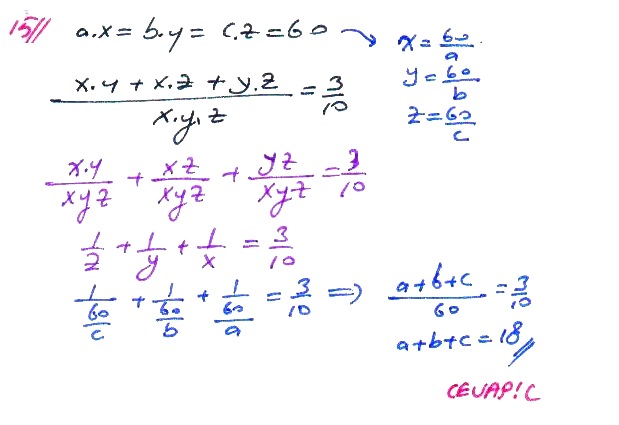 15// a.x = b.y = c.z = 60 → x = 60/a
y = 60/b
z = 60/c
(x.y + x.z + y.z)/(x.y.z) = 3/10
x.y/xyz + xz/xyz + yz/xyz = 3/10
1/z + 1/y + 1/x = 3/10
1/(60/c) + 1/(60/b) + 1/(60/a) = 3/10 ⇒ (a+b+c)/60 = 3/10
a+b+c = 18//
CEVAP: C